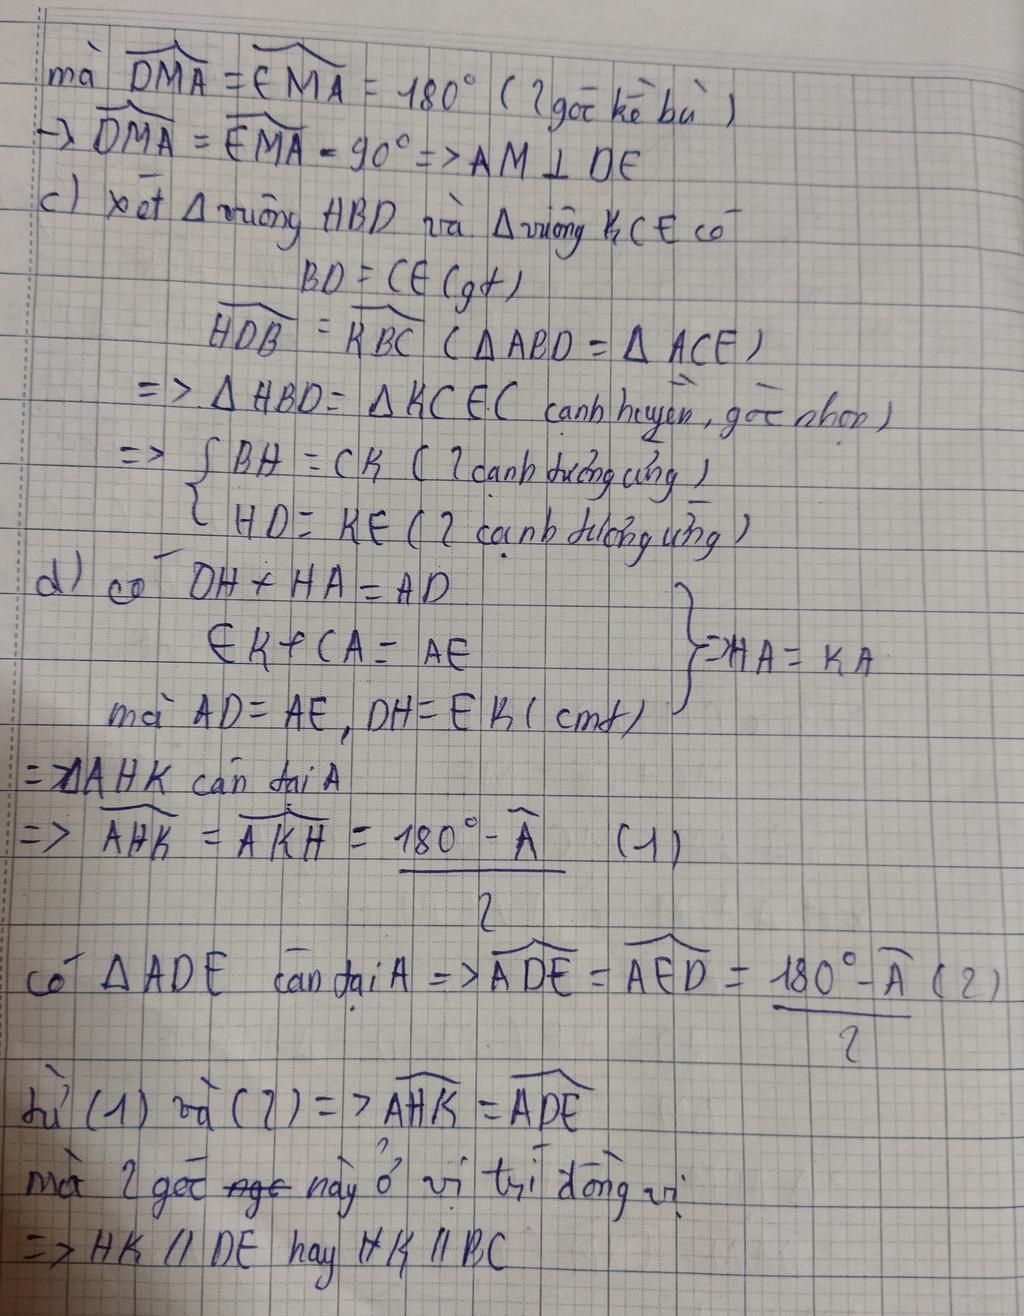 mà DMA = EMA = 180° (2 góc kề bù)
-> DMA = EMA = 90° => AM ⊥ DE
c) xét Δ vuông HBD và Δ vuông KCE có
BD = CE (gt)
HDB = KBC (ΔABD = ΔACE)
=> ΔHBD = ΔKCE ( cạnh huyền, góc nhọn)
=> { BH = CK (2 cạnh tương ứng)
HD = KE (2 cạnh tương ứng)
d) có DH + HA = AD
EK + CA = AE } => HA = KA
mà AD = AE, DH = EK (cmt)
=> ΔAHK cân tại A
=> AHK = AKH = 180° - A (1)
2
có ΔADE cân tại A => ADE = AED = 180° - A (2)
2
từ (1) và (2) => AHK = ADE
mà 2 góc này ở vị trí đồng vị
=> HK // DE hay HK // BC